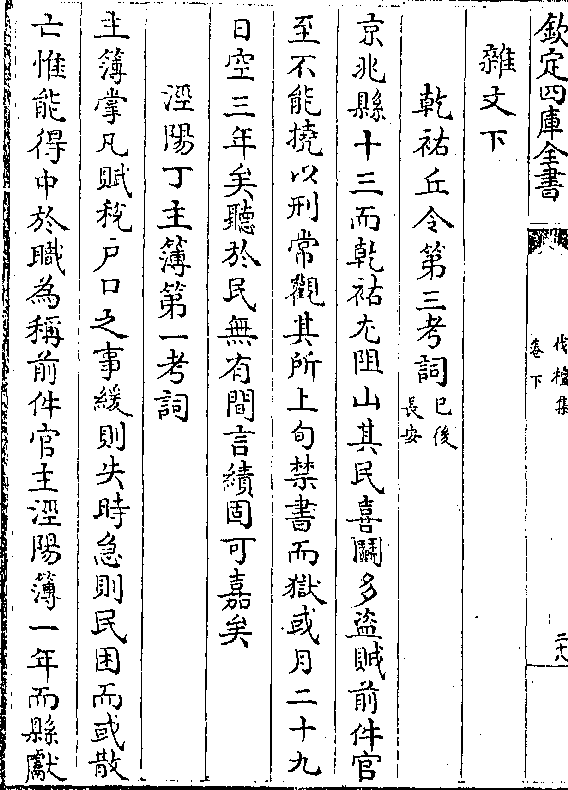 欽定四庫全書
伐檀集
卷下
二十八
雜文下
乾祐丘令第三考詞已後長安
京兆縣十三而乾祐尤阻山其民喜鬬多盜賊前件官
至不能撓以刑常觀其所上旬禁書而獄或月二十九
日空三年矣聽於民無有間言績固可嘉矣
涇陽丁主簿第一考詞
主簿掌凡賦稅戶口之事緩則失時急則民困而或散
亡惟能得中於職為稱前件官主涇陽簿一年而縣獻